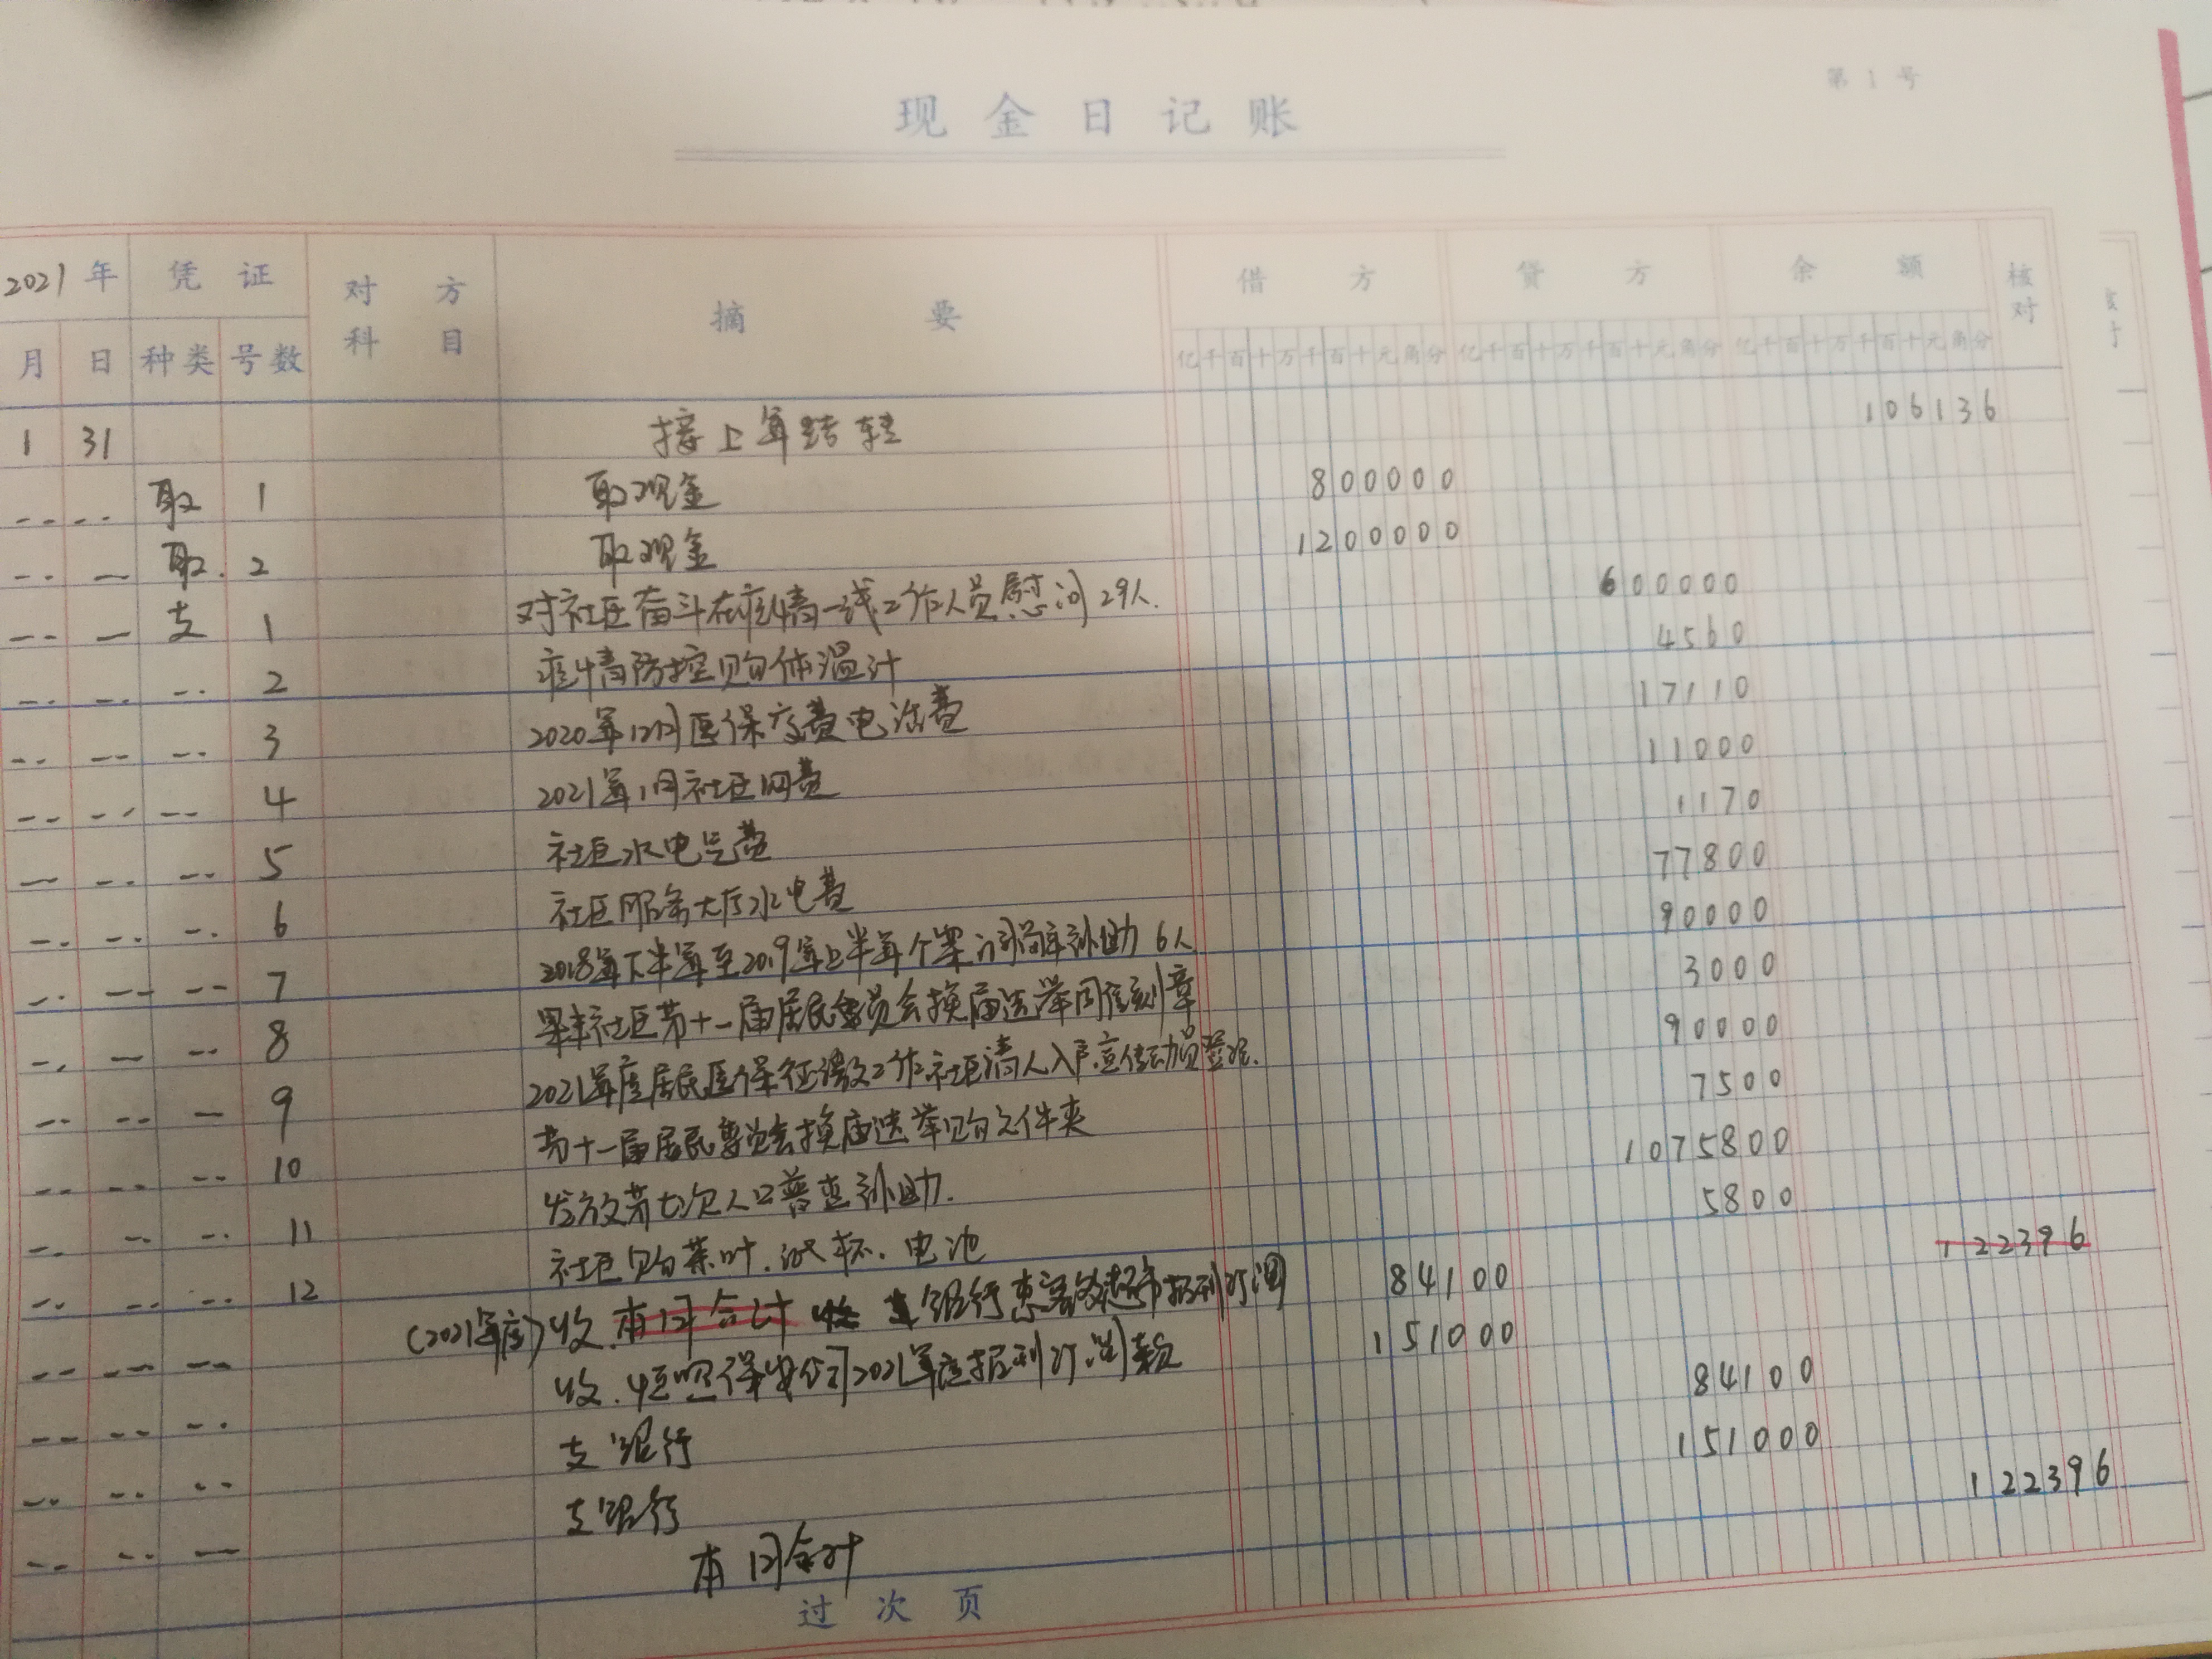 第 1 号
现金日记账
2021年 凭证 对方科目 摘要 借方 贷方 余额 核对
月 日 种类 号数 亿千百十万千百十元角分 亿千百十万千百十元角分 亿千百十万千百十元角分
1 31 接上年结转 106136
取 1 取现金 800000
取. 2 取现金 1200000
支 1 对社区奋斗在疫情一线工作人员慰问29人. 600000
2 疫情防控购体温计 4560
3 2020年12月医保交费电话费 17110
4 2021年1月社区网费 11000
5 社区水电气费 1170
6 社区服务大厅水电费 77800
7 2018年下半年至2019年上半年个案 补助 6人 90000
8 社区第十一届居民委员会换届选举 刻章 3000
9 2021年度居民医保征缴工作社区请人入户宣传动员 90000
10 第十一届居民委员会换届选举购文件夹 7500
11 发放第七次人口普查补助. 1075800
12 社区购茶叶.纸杯.电池 5800
122396
(2021年度)收.本月合计 银行惠 超市报刊订阅 84100
收. 保安公司2021年度报刊订阅款 151000
支银行 84100
支银行 151000
本月合计 122396
过次页